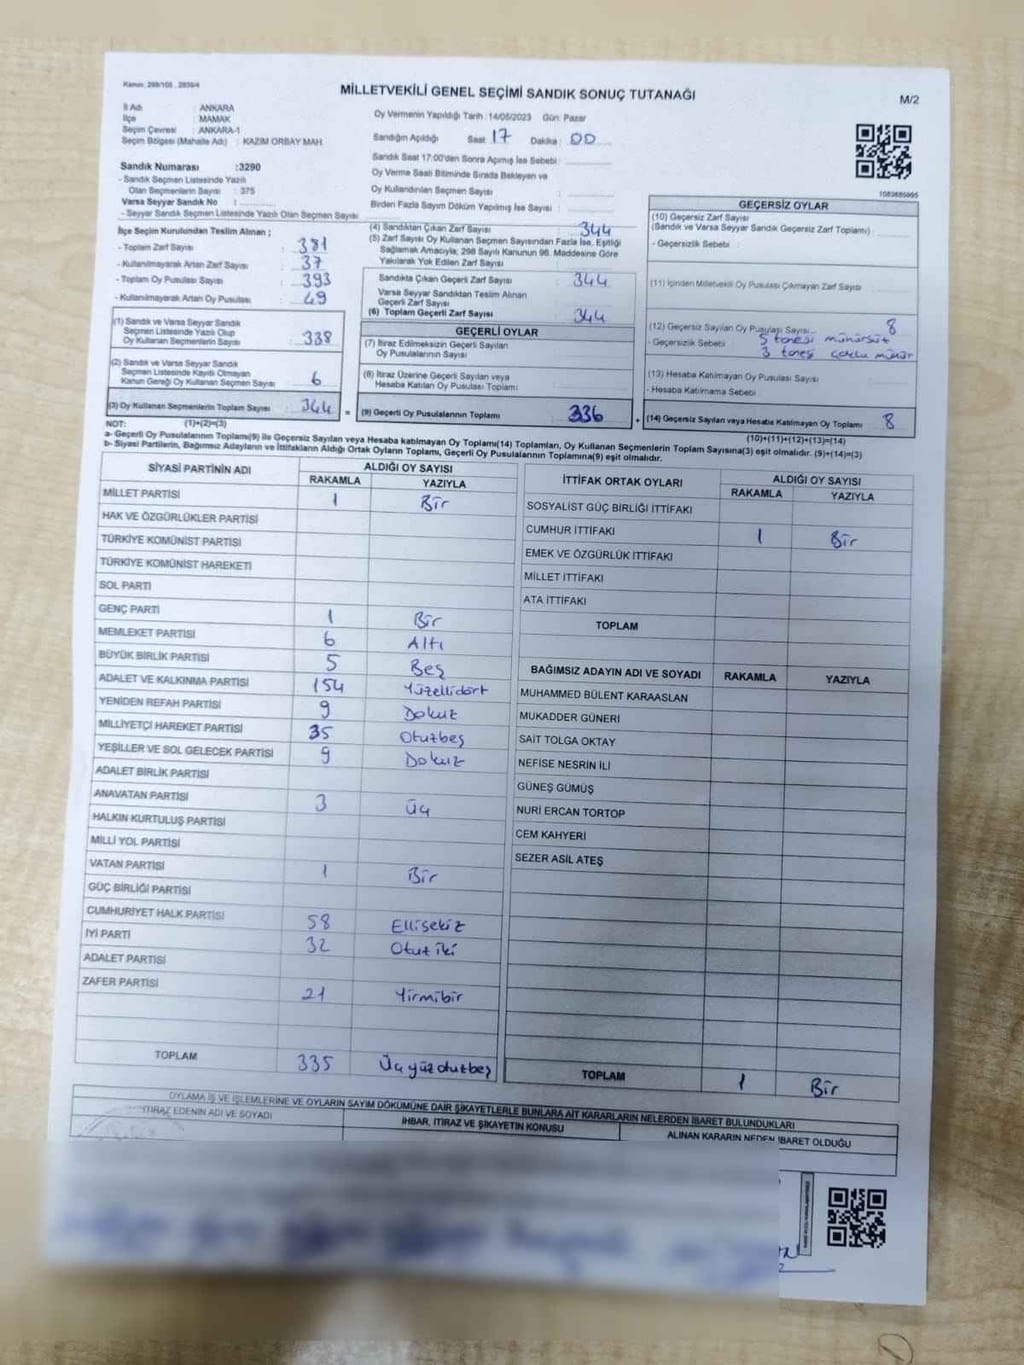 Kanun: 298/105 , 2839/4
MİLLETVEKİLİ GENEL SEÇİMİ SANDIK SONUÇ TUTANAĞI
M/2
İl Adı : ANKARA
İlçe : MAMAK
Seçim Çevresi : ANKARA-1
Seçim Bölgesi (Mahalle Adı) : KAZIM ORBAY MAH.
Oy Vermenin Yapıldığı Tarih : 14/05/2023 Gün: Pazar
Sandığın Açıldığı Saat : 17 Dakika : 00
Sandık Saat 17:00'den Sonra Açılmış İse Sebebi :
Oy Verme Saati Bitiminde Sırada Bekleyen ve
Oy Kullandırılan Seçmen Sayısı :
Birden Fazla Sayım Döküm Yapılmış İse Sayısı :
Sandık Numarası :3290
- Sandık Seçmen Listesinde Yazılı
Olan Seçmenlerin Sayısı : 375
Varsa Seyyar Sandık No :
- Seyyar Sandık Seçmen Listesinde Yazılı Olan Seçmen Sayısı
İlçe Seçim Kurulundan Teslim Alınan ;
- Toplam Zarf Sayısı : 381
- Kullanılmayarak Artan Zarf Sayısı : 37
- Toplam Oy Pusulası Sayısı : 393
- Kullanılmayarak Artan Oy Pusulası : 49
(1) Sandık ve Varsa Seyyar Sandık
Seçmen Listesinde Yazılı Olup
Oy Kullanan Seçmenlerin Sayısı : 338
(2) Sandık ve Varsa Seyyar Sandık
Seçmen Listesinde Kayıtlı Olmayan
Kanun Gereği Oy Kullanan Seçmen Sayısı : 6
(3) Oy Kullanan Seçmenlerin Toplam Sayısı : 344
(4) Sandıktan Çıkan Zarf Sayısı : 344
(5) Zarf Sayısı Oy Kullanan Seçmen Sayısından Fazla İse, Eşitliği
Sağlamak Amacıyla; 298 Sayılı Kanunun 98. Maddesine Göre
Yakılarak Yok Edilen Zarf Sayısı :
Sandıkta Çıkan Geçerli Zarf Sayısı : 344
Varsa Seyyar Sandıktan Teslim Alınan
Geçerli Zarf Sayısı :
(6) Toplam Geçerli Zarf Sayısı : 344
GEÇERLİ OYLAR
(7) İtiraz Edilmeksizin Geçerli Sayılan
Oy Pusulalarının Sayısı :
(8) İtiraz Üzerine Geçerli Sayılan veya
Hesaba Katılan Oy Pusulası Toplamı :
= (9) Geçerli Oy Pusulalarının Toplamı : 336
GEÇERSİZ OYLAR
(10) Geçersiz Zarf Sayısı
(Sandık ve Varsa Seyyar Sandık Geçersiz Zarf Toplamı) :
- Geçersizlik Sebebi :
(11) İçinden Milletvekili Oy Pusulası Çıkmayan Zarf Sayısı
(12) Geçersiz Sayılan Oy Pusulası Sayısı : 8
- Geçersizlik Sebebi : 5 tanesi mühürsüz
3 tanesi çoklu mühür
(13) Hesaba Katılmayan Oy Pusulası Sayısı :
- Hesaba Katılmama Sebebi :
+ (14) Geçersiz Sayılan veya Hesaba Katılmayan Oy Toplamı : 8
NOT: (1)+(2)=(3)
(10)+(11)+(12)+(13)=(14)
a- Geçerli Oy Pusulalarının Toplamı(9) ile Geçersiz Sayılan veya Hesaba katılmayan Oy Toplamı(14) Toplamları, Oy Kullanan Seçmenlerin Toplam Sayısına(3) eşit olmalıdır. (9)+(14)=(3)
b- Siyasi Partilerin, Bağımsız Adayların ve İttifakların Aldığı Ortak Oyların Toplamı, Geçerli Oy Pusulalarının Toplamına(9) eşit olmalıdır.
SİYASİ PARTİNİN ADI ALDIĞI OY SAYISI
RAKAMLA YAZIYLA
MİLLET PARTİSİ 1 Bir
HAK VE ÖZGÜRLÜKLER PARTİSİ
TÜRKİYE KOMÜNİST PARTİSİ
TÜRKİYE KOMÜNİST HAREKETİ
SOL PARTİ
GENÇ PARTİ 1 Bir
MEMLEKET PARTİSİ 6 Altı
BÜYÜK BİRLİK PARTİSİ 5 Beş
ADALET VE KALKINMA PARTİSİ 154 Yüzellidört
YENİDEN REFAH PARTİSİ 9 Dokuz
MİLLİYETÇİ HAREKET PARTİSİ 35 Otuzbeş
YEŞİLLER VE SOL GELECEK PARTİSİ 9 Dokuz
ADALET BİRLİK PARTİSİ
ANAVATAN PARTİSİ 3 Üç
HALKIN KURTULUŞ PARTİSİ
MİLLİ YOL PARTİSİ
VATAN PARTİSİ 1 Bir
GÜÇ BİRLİĞİ PARTİSİ
CUMHURİYET HALK PARTİSİ 58 Ellisekiz
İYİ PARTİ 32 Otuziki
ADALET PARTİSİ
ZAFER PARTİSİ 21 Yirmibir
TOPLAM 335 Üçyüzotuzbeş
İTTİFAK ORTAK OYLARI ALDIĞI OY SAYISI
RAKAMLA YAZIYLA
SOSYALİST GÜÇ BİRLİĞİ İTTİFAKI
CUMHUR İTTİFAKI 1 Bir
EMEK VE ÖZGÜRLÜK İTTİFAKI
MİLLET İTTİFAKI
ATA İTTİFAKI
TOPLAM
BAĞIMSIZ ADAYIN ADI VE SOYADI RAKAMLA YAZIYLA
MUHAMMED BÜLENT KARAASLAN
MUKADDER GÜNERİ
SAİT TOLGA OKTAY
NEFİSE NESRİN İLİ
GÜNEŞ GÜMÜŞ
NURİ ERCAN TORTOP
CEM KAHYERİ
SEZER ASİL ATEŞ
TOPLAM 1 Bir
OYLAMA İŞ VE İŞLEMLERİNE VE OYLARIN SAYIM DÖKÜMÜNE DAİR ŞİKAYETLERLE BUNLARA AİT KARARLARIN NELERDEN İBARET BULUNDUKLARI
İTİRAZ EDENİN ADI VE SOYADI
İHBAR, İTİRAZ VE ŞİKAYETİN KONUSU
ALINAN KARARIN NEDEN İBARET OLDUĞU